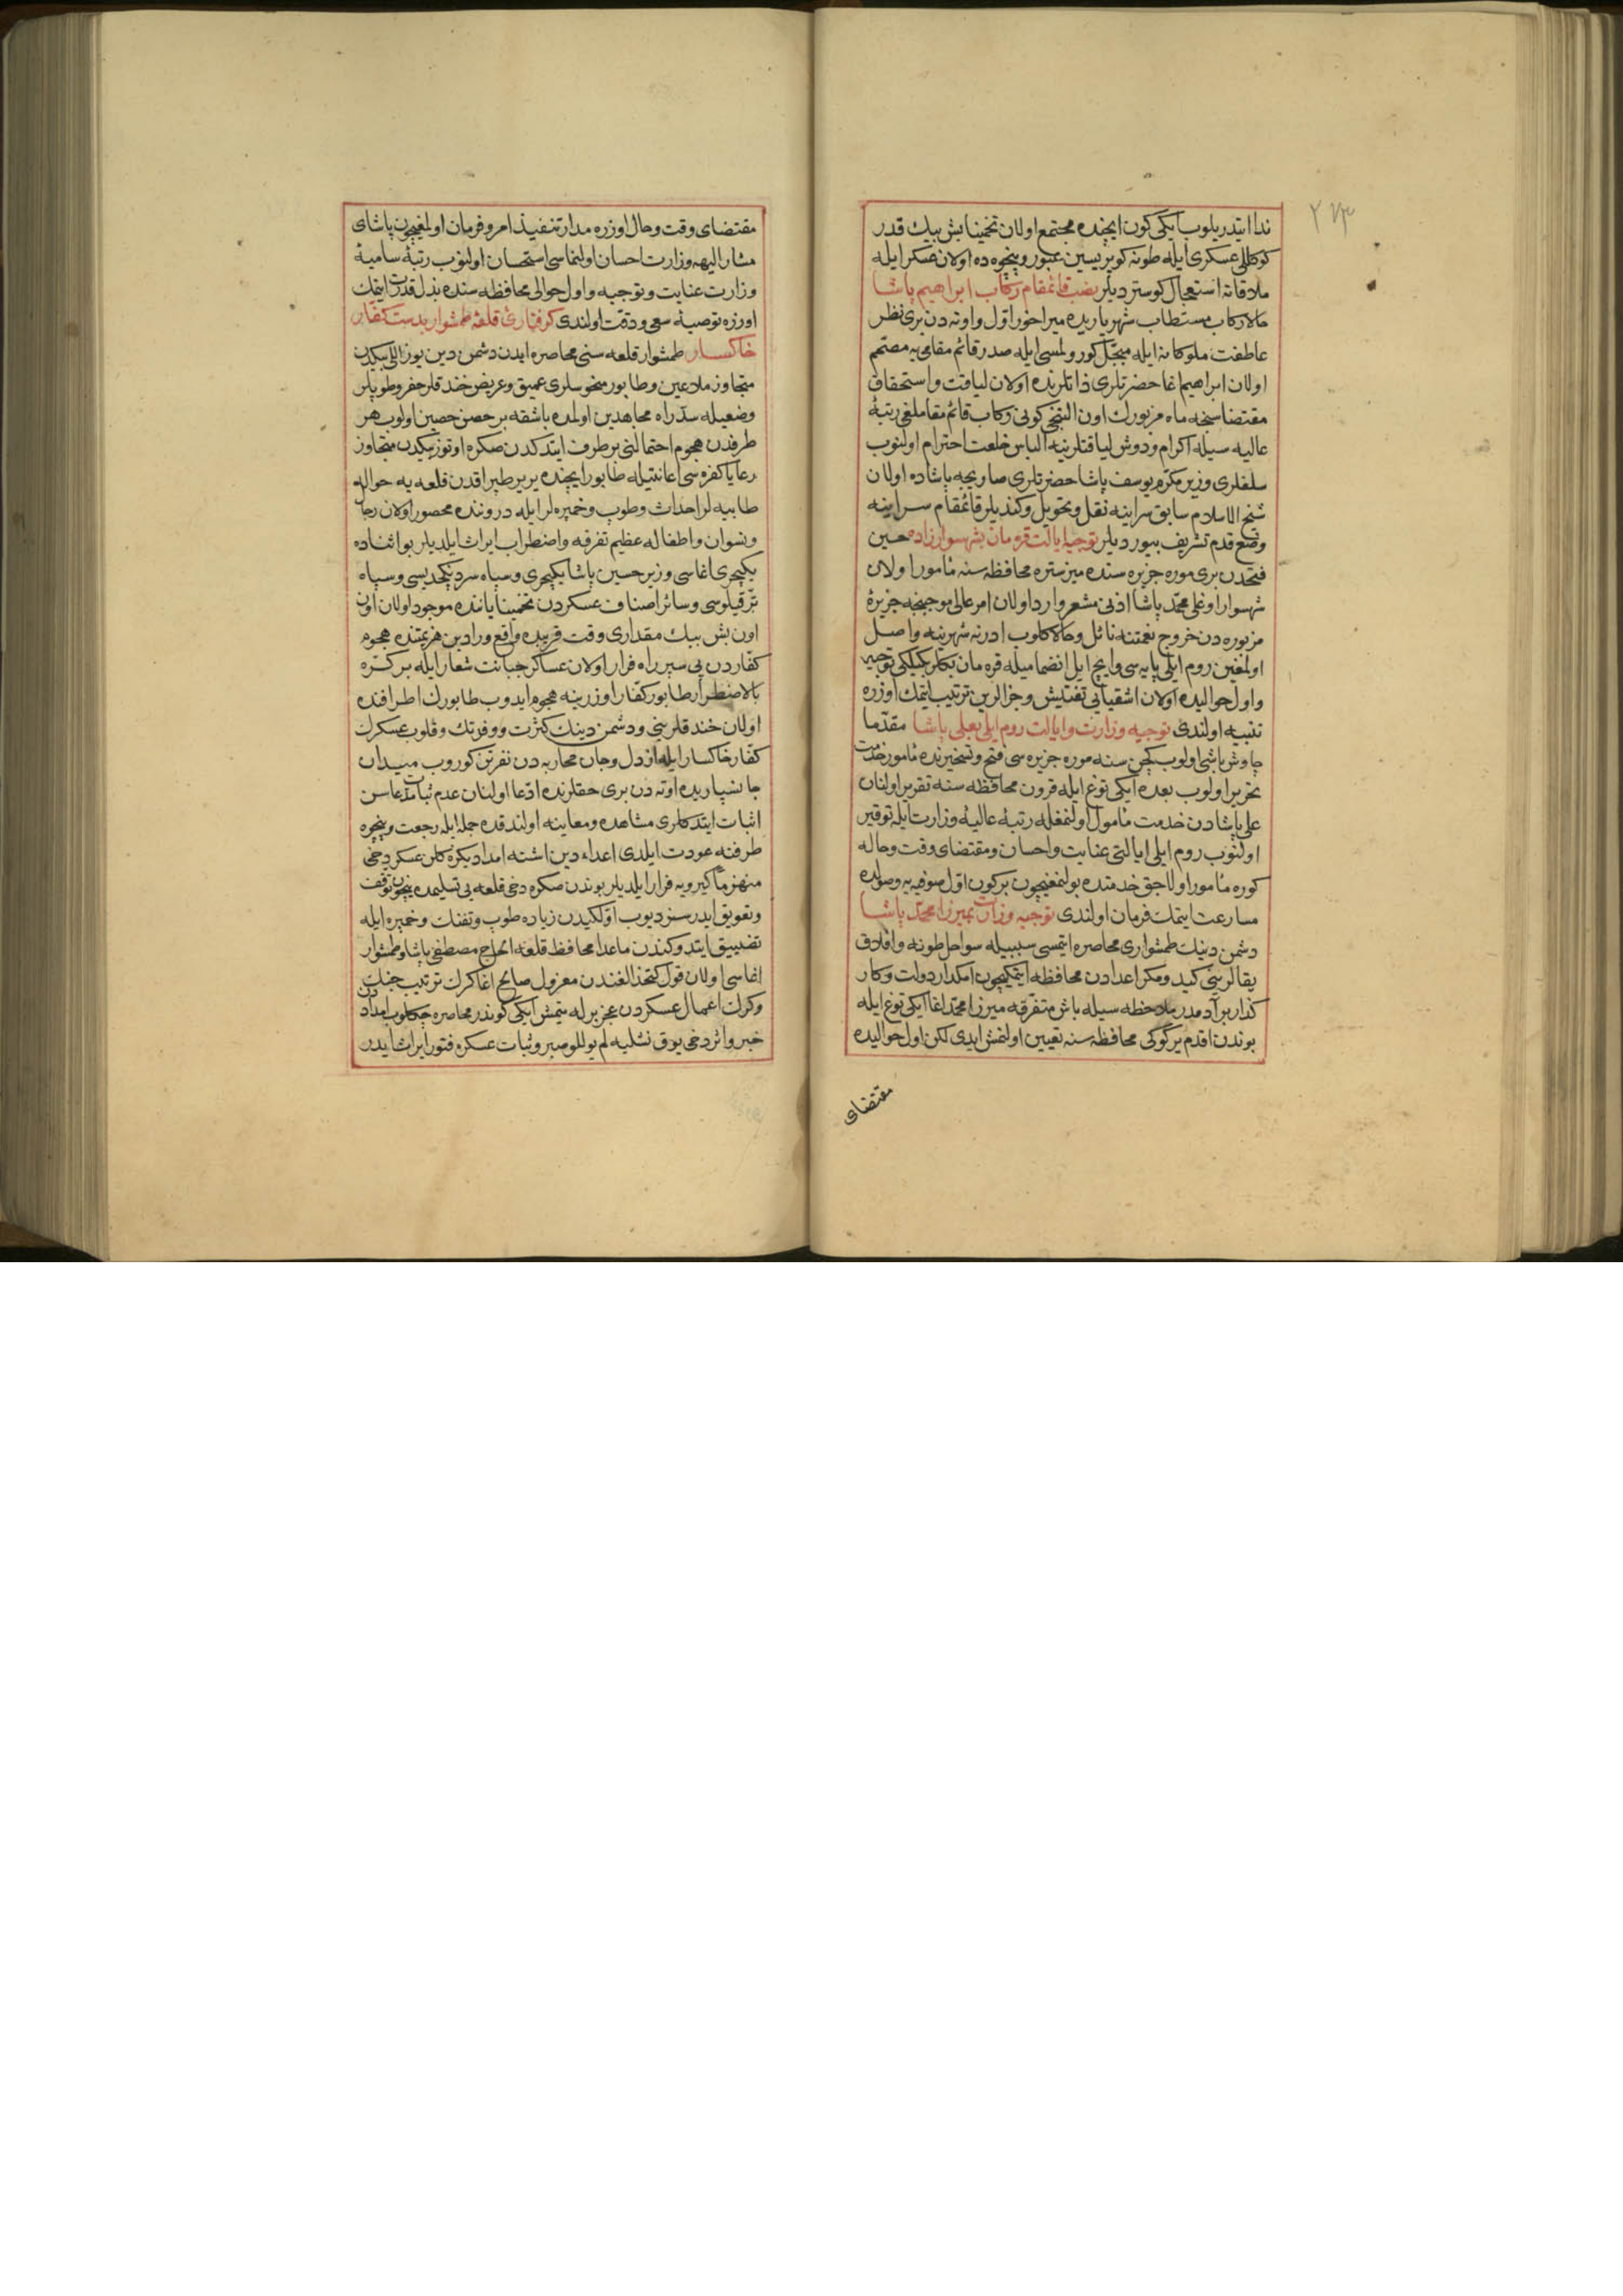 ٢٧٣
ندا ایتدیریلوب ایکی کون ایچنده مجتمع اولان تخمینا بش بیك قدر
کوکللی عسکری ایله طونه کوپریسین عبور و پنچوه ده اولان عسکر ایله
ملاقاته استعجال کوستردیلر نصب قائمقام رکاب ابراهیم پاشا
حالا رکاب مستطاب شهریاریده میراخور اول و اوته دن بری نظر
عاطفت ملوکانه ایله مبجّل کورولمسی ایله صدر قائم مقامی یه مصمّم
اولان ابراهیم اغا حضرتلری ذاتلرنده اولان لیاقت و استحقاق
مقتضاسنجه ماه مزبورك اون التنجی کونی رکاب قائم مقاملغی رتبۀ
عالیه سیله اکرام و دوش لیاقتلرینه الباس خلعت احترام اولنوب
سلفلری وزیر مکرّم یوسف پاشا حضرتلری صاریجه پاشاده اولان
شیخ الاسلام سابق سراینه نقل و تحویل و کندیلر قائمقام سراینه
وضع قدم تشریف بیوردیلر توجیه ایالت قرمان بشهسوار زاده حسین
فتحدن بری موره جزیره سنده میزستره محافظه سنه مأمور اولان
شهسوار اوغلی محمّد پاشا اذنی مشعر وارد اولان امر عالی موجبنجه جزیرۀ
مزبوره دن خروج نعمتنه نائل و حالا کلوب ادرنه شهرینه واصل
اولمغین روم ایلی پایه سی و ایچ ایل انضمامیله قره مان بکلربکیلکی توجیه
و اول حوالیده اولان اشقیایی تفتیش و جزالرین ترتیب ایتمك اوزره
تنبیه اولندی توجیه وزارت و ایالت روم ایلی بعلی پاشا مقدّما
چاوش باشی اولوب کچن سنه موره جزیره سی فتح و تسخیرنده مأمور خدمت
تحریر اولوب بعده ایکی توغ ایله قرون محافظه سنه تقریر اولنان
علی پاشادن خدمت مأمول اولنمغله رتبۀ عالیۀ وزارت ایله توقیر
اولنوب روم ایلی ایالتی عنایت و احسان و مقتضای وقت و حاله
کوره مأمور اولاجق خدمتده بولنمغیچون برکون اول صوفیه یه وصولده
مسارعت ایتمك فرمان اولندی توجیه وزارت بمیرزا محمّد پاشا
دشمن دینك طمشواری محاصره ایتمسی سببیله سواحل طونه و افلاق
یقالرینی کید و مکر اعدادن محافظه ایتمکیچون امکدار دولت و کار
کذار برآدمدر ملاحظه سیله باش متفرقه میرزا محمّد اغا ایکی توغ ایله
بوندن اقدم یرکوکی محافظه سنه تعیین اولنمش ایدی لکن اول حوالیده
مقتضای
مقتضای وقت و حال اوزره مدار تنفیذ امر و فرمان اولمغیچون پاشای
مشار الیهه وزارت احسان اولنماسی استحسان اولنوب رتبۀ سامیۀ
وزارت عنایت و توجیه و اول حوالی محافظه سنده بذل قدرت ایتمك
اوزره توصیۀ سعی و دقت اولندی کرفتارئ قلعۀ طمشوار بدست کفّار
خاکسار طمشوار قلعه سنی محاصره ایدن دشمن دین یوز اللی بیکدن
متجاوز ملاعین و طابور منحوسلری عمیق و عریض خندقلر حفر و طوپلر
وضعیله سدّ راه مجاهدین اولمده باشقه بر حصن حصین اولوب هر
طرفدن هجوم احتمالنی برطرف ایتدکدن صکره اوتوز بیکدن متجاوز
رعایا کفره سی اعانتیله طابور ایچنده یر یر طپراقدن قلعه یه حواله
طابیه لر احداث و طوپ و خمپره لر ایله دروننده محصور اولان رجال
و نسوان و اطفاله عظیم تفرقه و اضطراب ایراث ایلدیلر بو اثناده
یکیچری اغاسی وزیر حسین پاشا یکیچری و سپاه سردنکچدیسی و سپاه
ترقیلوسی و سائر اصناف عسکردن تخمینا یاننده موجود اولان اون
اون بش بیك مقداری وقت قریبده واقع ورادین هزیمتنده هجوم
کفاردن بی سپر راه فرار اولان عساکر جبانت شعار ایله بر کرّه
بالاضطرار طابور کفّار اوزرینه هجوم ایدوب طابورك اطرافنده
اولان خندقلرینی و دشمن دینك کثرت و وفرتك و قلوب عسکرك
کفّار خاکسار ایله از دل و جان محاربه دن تفرتن کوروب میدان
جانسپاریده اوته دن بری حقلرنده ادّعا اولنان عدم ثبات مدّعاسن
اثبات ایتدکلری مشاهده و معاینه اولندقده جمله ایله رجعت و پنچوه
طرفنه عودت ایلدی اعداء دین اشته امداد یکز کلن عسکر دخی
منهزماً کیرویه فرار ایلدیلر بوندن صکره دخی قلعه یی تسلیمده نیچون توقف
و تعویق ایدرسز دیوب اوّلکیدن زیاده طوپ و تفنك و خمپره ایله
تضییق ایتد وکندن ماعدا محافظ قلعه الحاج مصطفی پاشا و طمشوار
اغاسی اولان قول کتخدالغندن معزول صالح اغا کرك ترتیب جنك
و کرك اعمال عسکردن عجز برله یتمش ایکی کوندر محاصره چکلوب امداددن
خبر و اثر دخی یوق نتلیه لم یوللو صبر و ثبات عسکره فتور ایراث ایدر